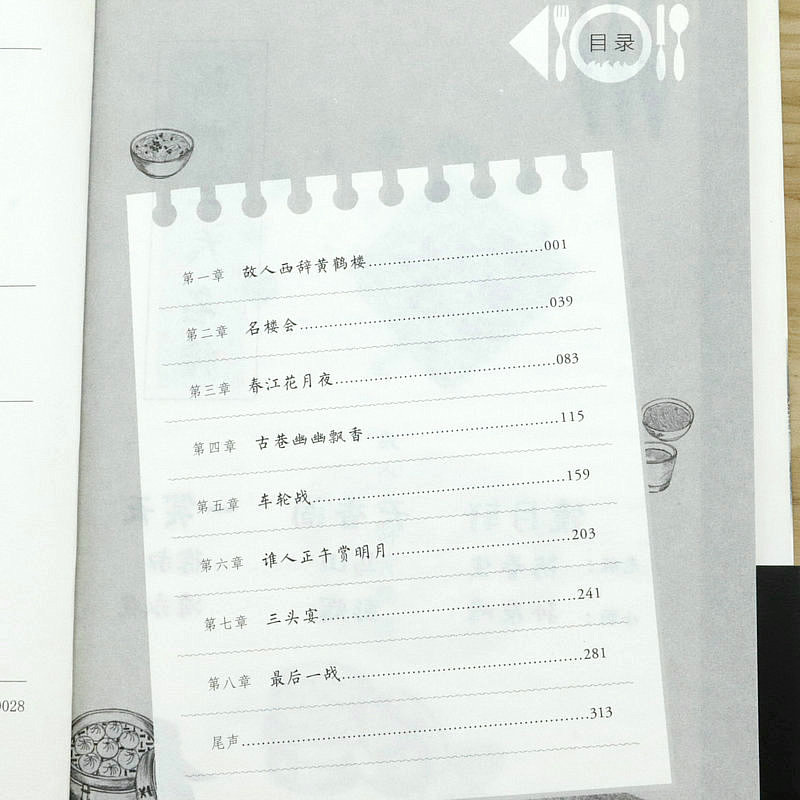 目录
第一章 故人西辞黄鹤楼........................001
第二章 名楼会........................039
第三章 春江花月夜........................083
第四章 古巷幽幽飘香........................115
第五章 车轮战........................159
第六章 谁人正午赏明月........................203
第七章 三头宴........................241
第八章 最后一战........................281
尾声........................313
0028